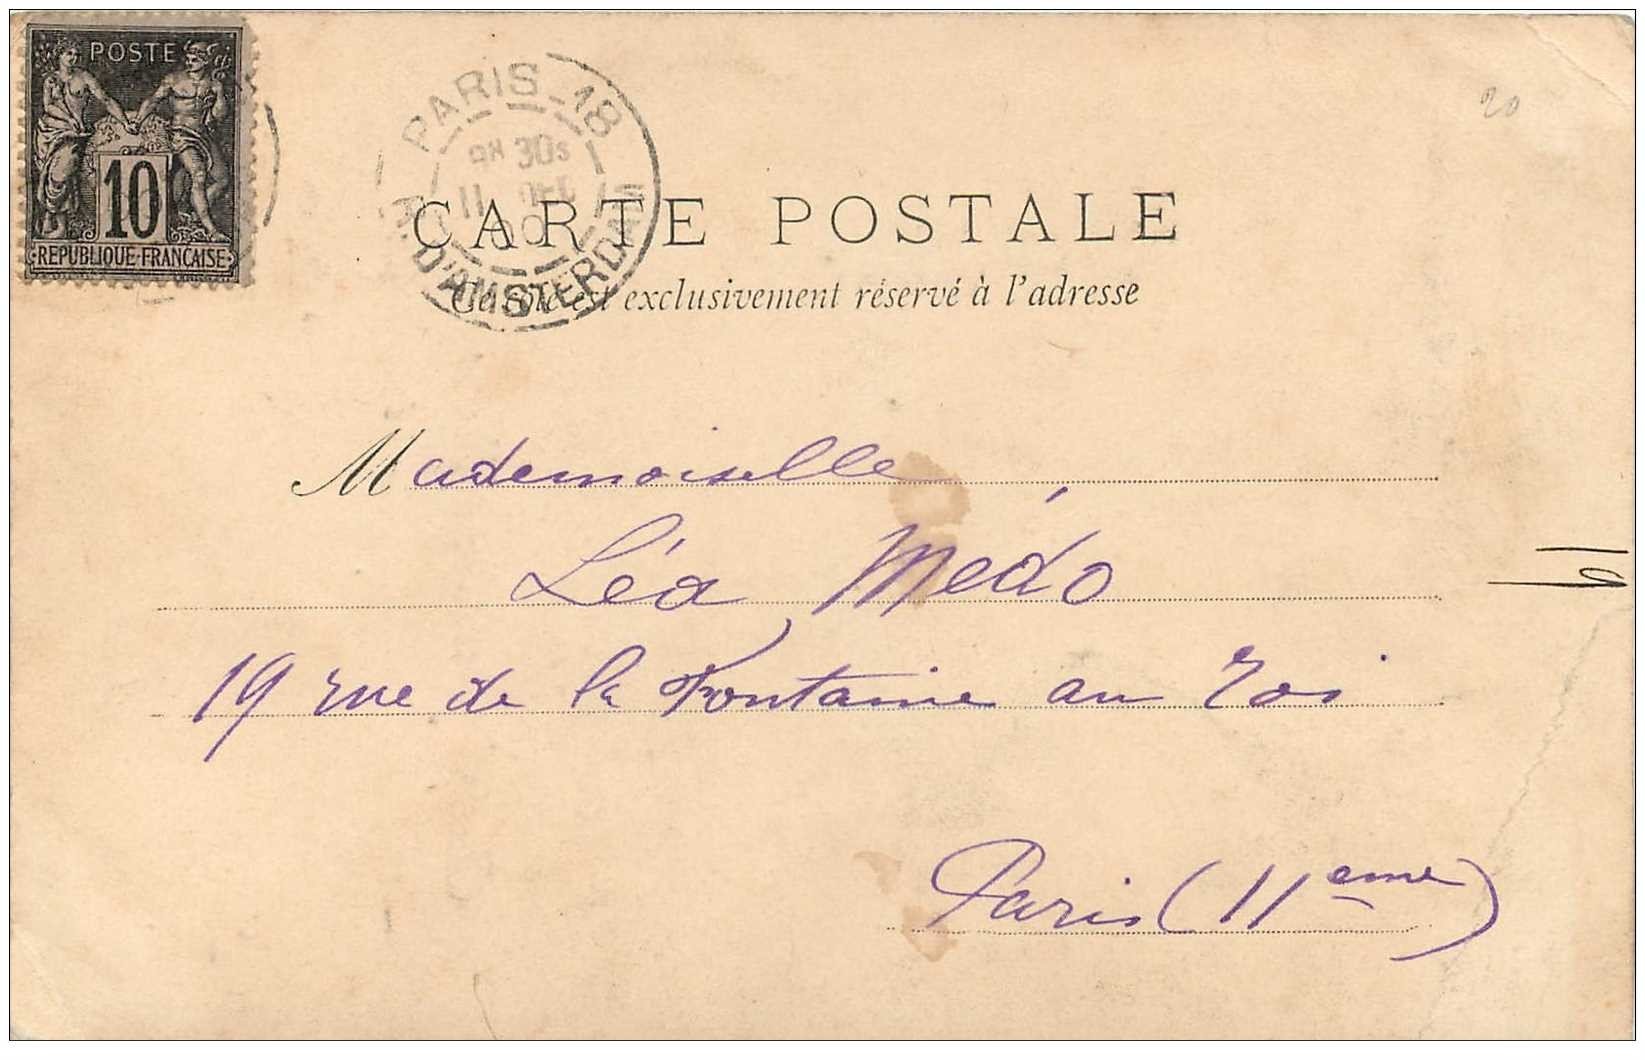 POSTE
10
RÉPUBLIQUE-FRANÇAISE
PARIS 18
30s
11 DEC
00
R. D'AMSTERDAM
20
CARTE POSTALE
Ce côté est exclusivement réservé à l'adresse
Mademoiselle
Léa Médo
19 rue de la Fontaine au Roi
Paris (11eme)